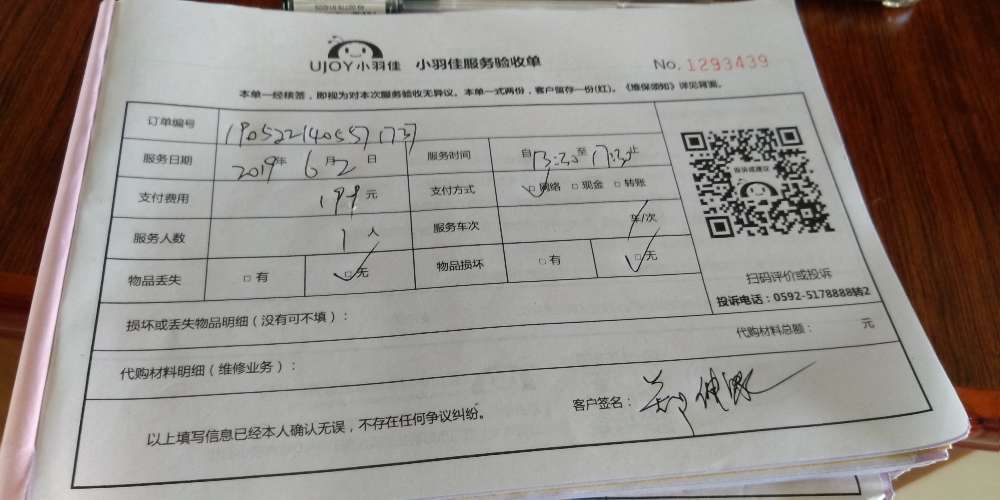 UJOY小羽佳 小羽佳服务验收单 No. 1293439
本单一经核签，即视为对本次服务验收无异议。本单一式两份，客户留存一份(红)。《维保须知》详见背面。
订单编号 1905221405571737
服务日期 2019年 6月2日 服务时间 自13:30至17:30止
支付费用 199元 支付方式 □网络 □现金 □转账
服务人数 1人 服务车次 车/次
物品丢失 □有 □无 物品损坏 □有 □无
扫码评价或投诉
投诉电话：0592-5178888转2
损坏或丢失物品明细（没有可不填）：
代购材料总额： 元
代购材料明细（维修业务）：
客户签名：
以上填写信息已经本人确认无误，不存在任何争议纠纷。